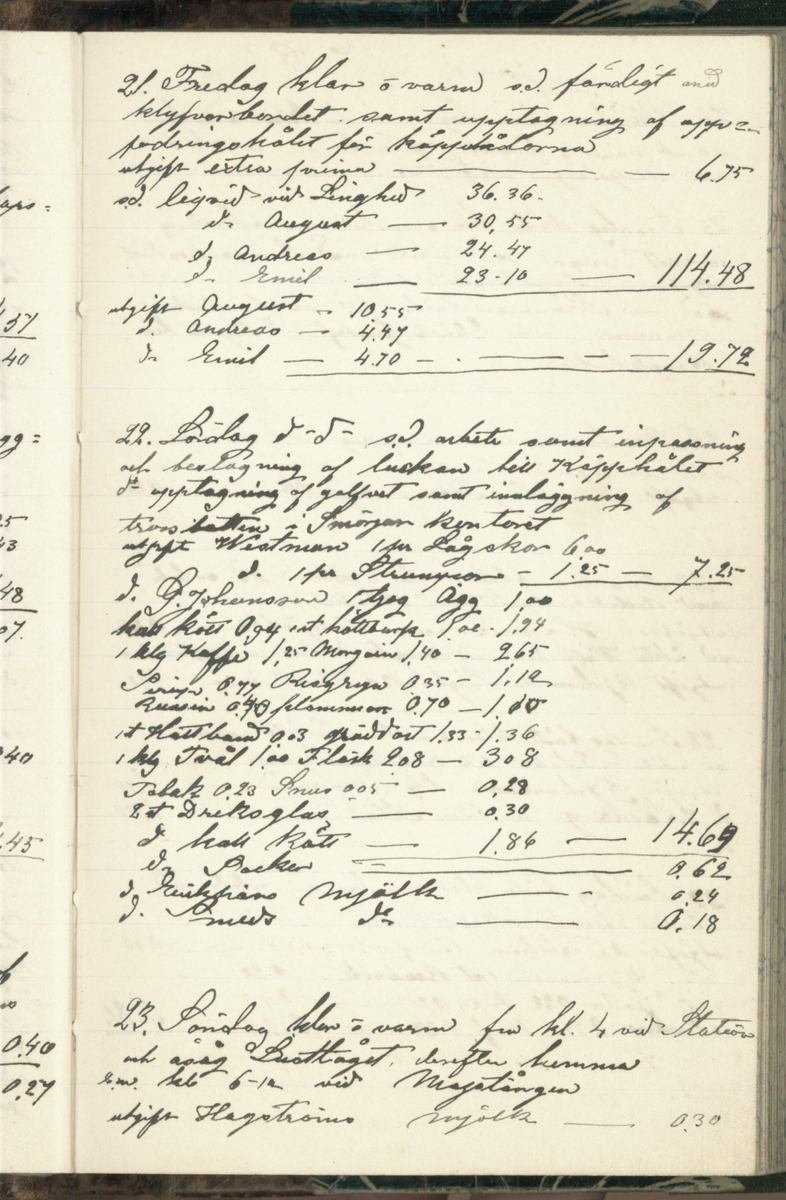 21. Fredag klar o varm s.d. färdigt med
klyfvarbordet samt upptagning af upp=
fodringshålet för
utgift extra prima — 6.75
sd. liqvid vid Linghed 36.36.
d. August — 30,55
d. Andreas — 24.47
d. Emil — 23-10 — 114.48
utgift August - 10.55
d. Andreas — 4.47
d. Emil — 4.70 - . — - — 19.72
22. Lördag d-d- s.d. arbete samt inpassning
och beslagning af luckan till Käpphålet
dº upptagning af golfvet samt inläggning af
i Smörgår kontoret
utgift Westman 1 pr Lågskor 6,00
d. 1 pr Strumpor - 1.25 — 7.25
d. G. Johansson 1 tjog Ägg 1,00
kalf kött 0,94 1 st köttburk 1,00 - 1,94
1 klg Kaffe 1,25 Margarin 1,40 — 265
0.77 Risgryn 0.35 — 1,12
Russin 0.40 plommon 0.70 — 1.10
1 st Hattband 0.03 gräddost 1.33 - 1.36
1 klg Tvål 1,00 Fläsk 208 — 308
Tobak 0.23 Snus 005 — 0,28
2 st Driksglas — 0.30
d. kalf Kött — 1.86 — 14.69
d. Socker — 0.62
d. Mjölk — - 0.24
d. Smeds dº — 0.18
23. Söndag klar o varm fm kl. 4 vid Station
och åsåg Lusttåget, derefter hemma
e.m. kl 6-12 vid Majstången
utgift Hagströms mjölk — 0.30
37
40
gg=
25
43
48
07.
40
.45
0.40
0.27